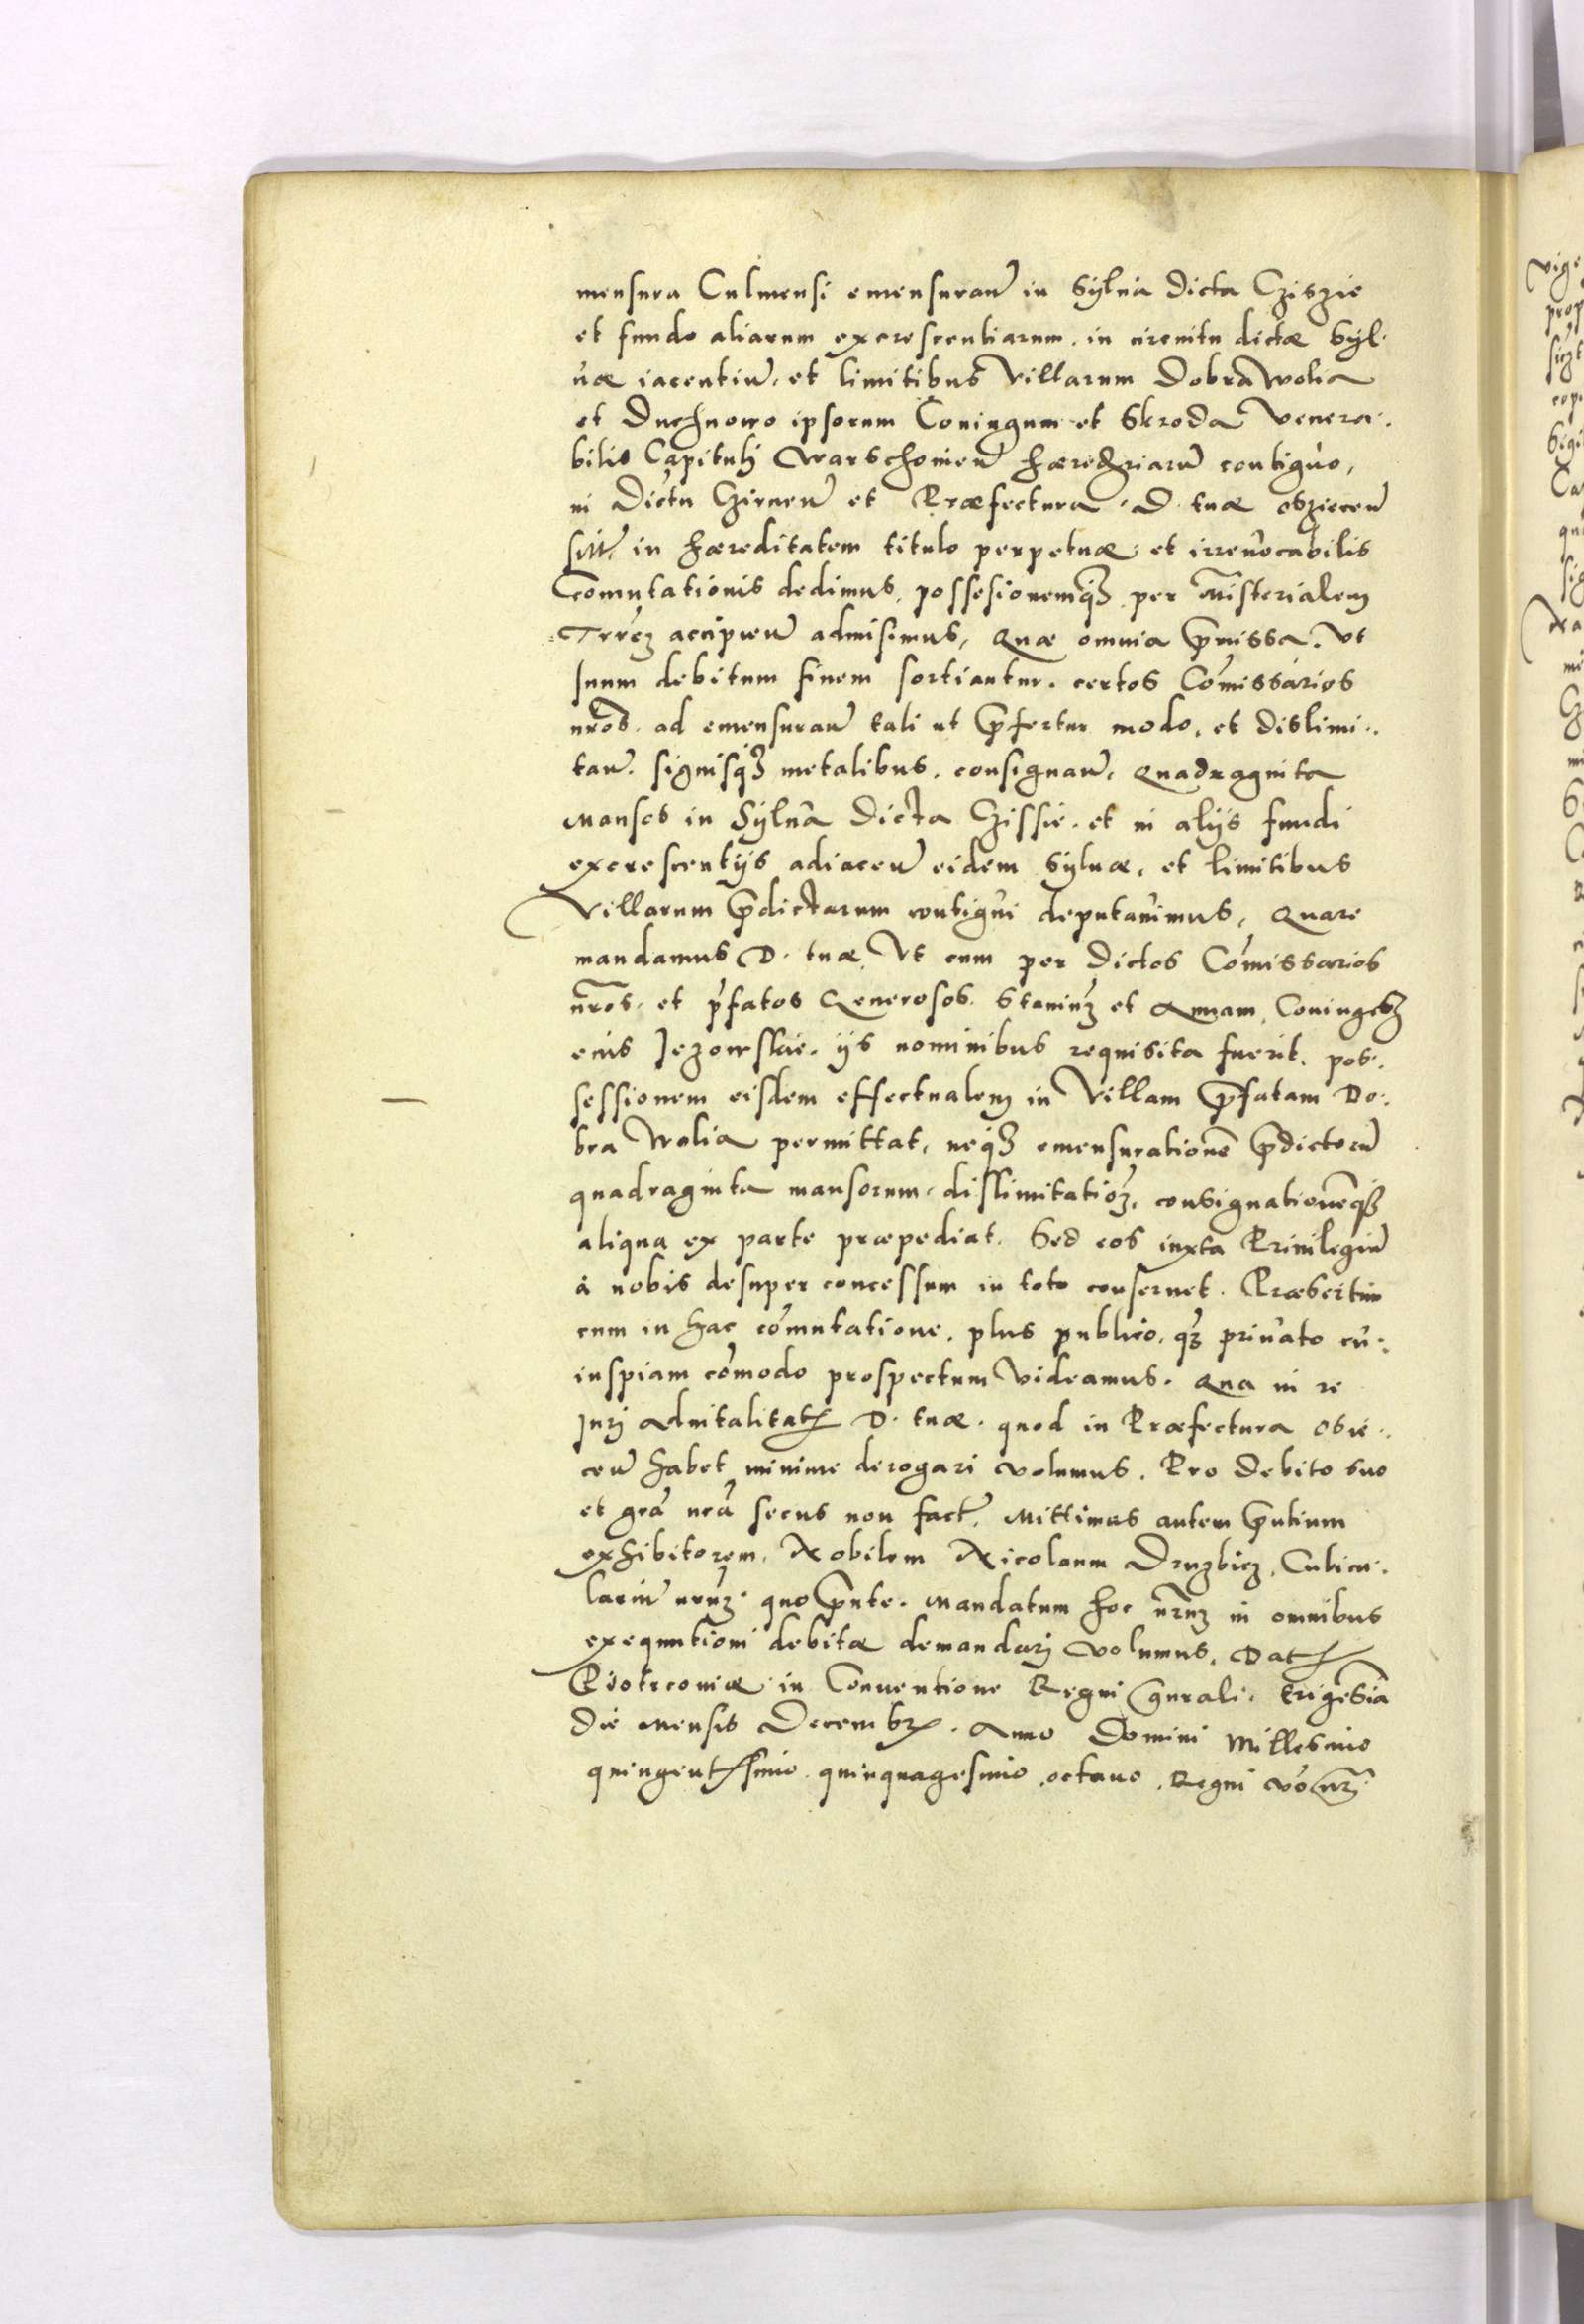 mensura Culmensi emensuran̄ in Sylua dicta Cziszie
et fundo aliarum excrescentiarum. in circuitu dictæ Syl-
uæ iacentiū, et limitibus Villarum Dobra Wolia
et Duchnowo ipsorum Coniugum et Skroda Venera-
bilis Capituli Warschouien̄ hæreditariarū contiguo,
in dictu Czirnen̄ et Præfectura D. tuæ obziecen̄
sitt. in hæreditatem titulo perpetuæ et irreuocabilis
Com̄utationis dedimus, possesionemq₃ per Mīsterialem
Trrēz accipien̄ admisimus, Quæ omnia p̄missa. Vt
suum debitum finem sortiantur. certos Com̄issarios
nr̄os. ad emensuran̄ tali ut p̄fertur modo, et dislimi-
tan̄. signisq₃ metalibus. consignan̄. Quadraginta
Mansos in Sylua dicta Czissie. et in alijs fundi
excrescentijs adiacen̄ eidem Syluæ, et limitibus
Villarum p̄dictarum contigui deputauimus, Quare
mandamus D. tuæ Vt cum per dictos Com̄issarios
nr̄os. et p̄fatos Generosos. Stanīuz et Annam, Coniuges
eius Jezowskie. ijs nominibus requisita fuerit. pos-
sessionem eisdem effectualem in Villam p̄fatam Do-
bra Wolia permittat, neq₃ emensurationē p̄dictorū
quadraginta mansorum, dislimitatiōz, consignationēq₃
aliqua ex parte præpediat. Sed eos iuxta Priuilegiū
à nobis desuper concessum in toto conseruet. Præsertim
cum in hac com̄utatione, plus publico, qz̄ priuato cu-
iuspiam com̄odo prospectum videamus. Qua in re
Juri aduitalitatis D. tuæ. quod in Præfectura Obie-
cen̄ habet minime derogari volumus. Pro debito suo
et grā nrā secus non fact̄. Mittimus autem p̄ntium
exhibitorem, Nobilem Nicolaum Druzbicz, Cubicu-
lariū nrūz. quo p̄nte. Mandatum hoc nr̄uz in omnibus
exequutioni debitæ demandari volumus, Dat
Piotrcouiæ in Conuentione Regni gn̄rali. trigesīa
die Mensis Decembr. Anno Domini Millesimo
quingentesimo quinquagesimo octauo. Regni vero nr̄i